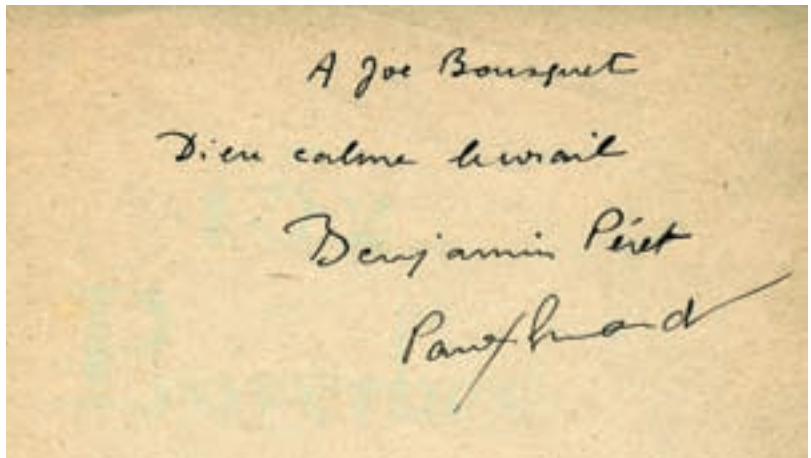 A Joe Bousquet
Dieu calme le corail
Benjamin Péret
Paul Eluard